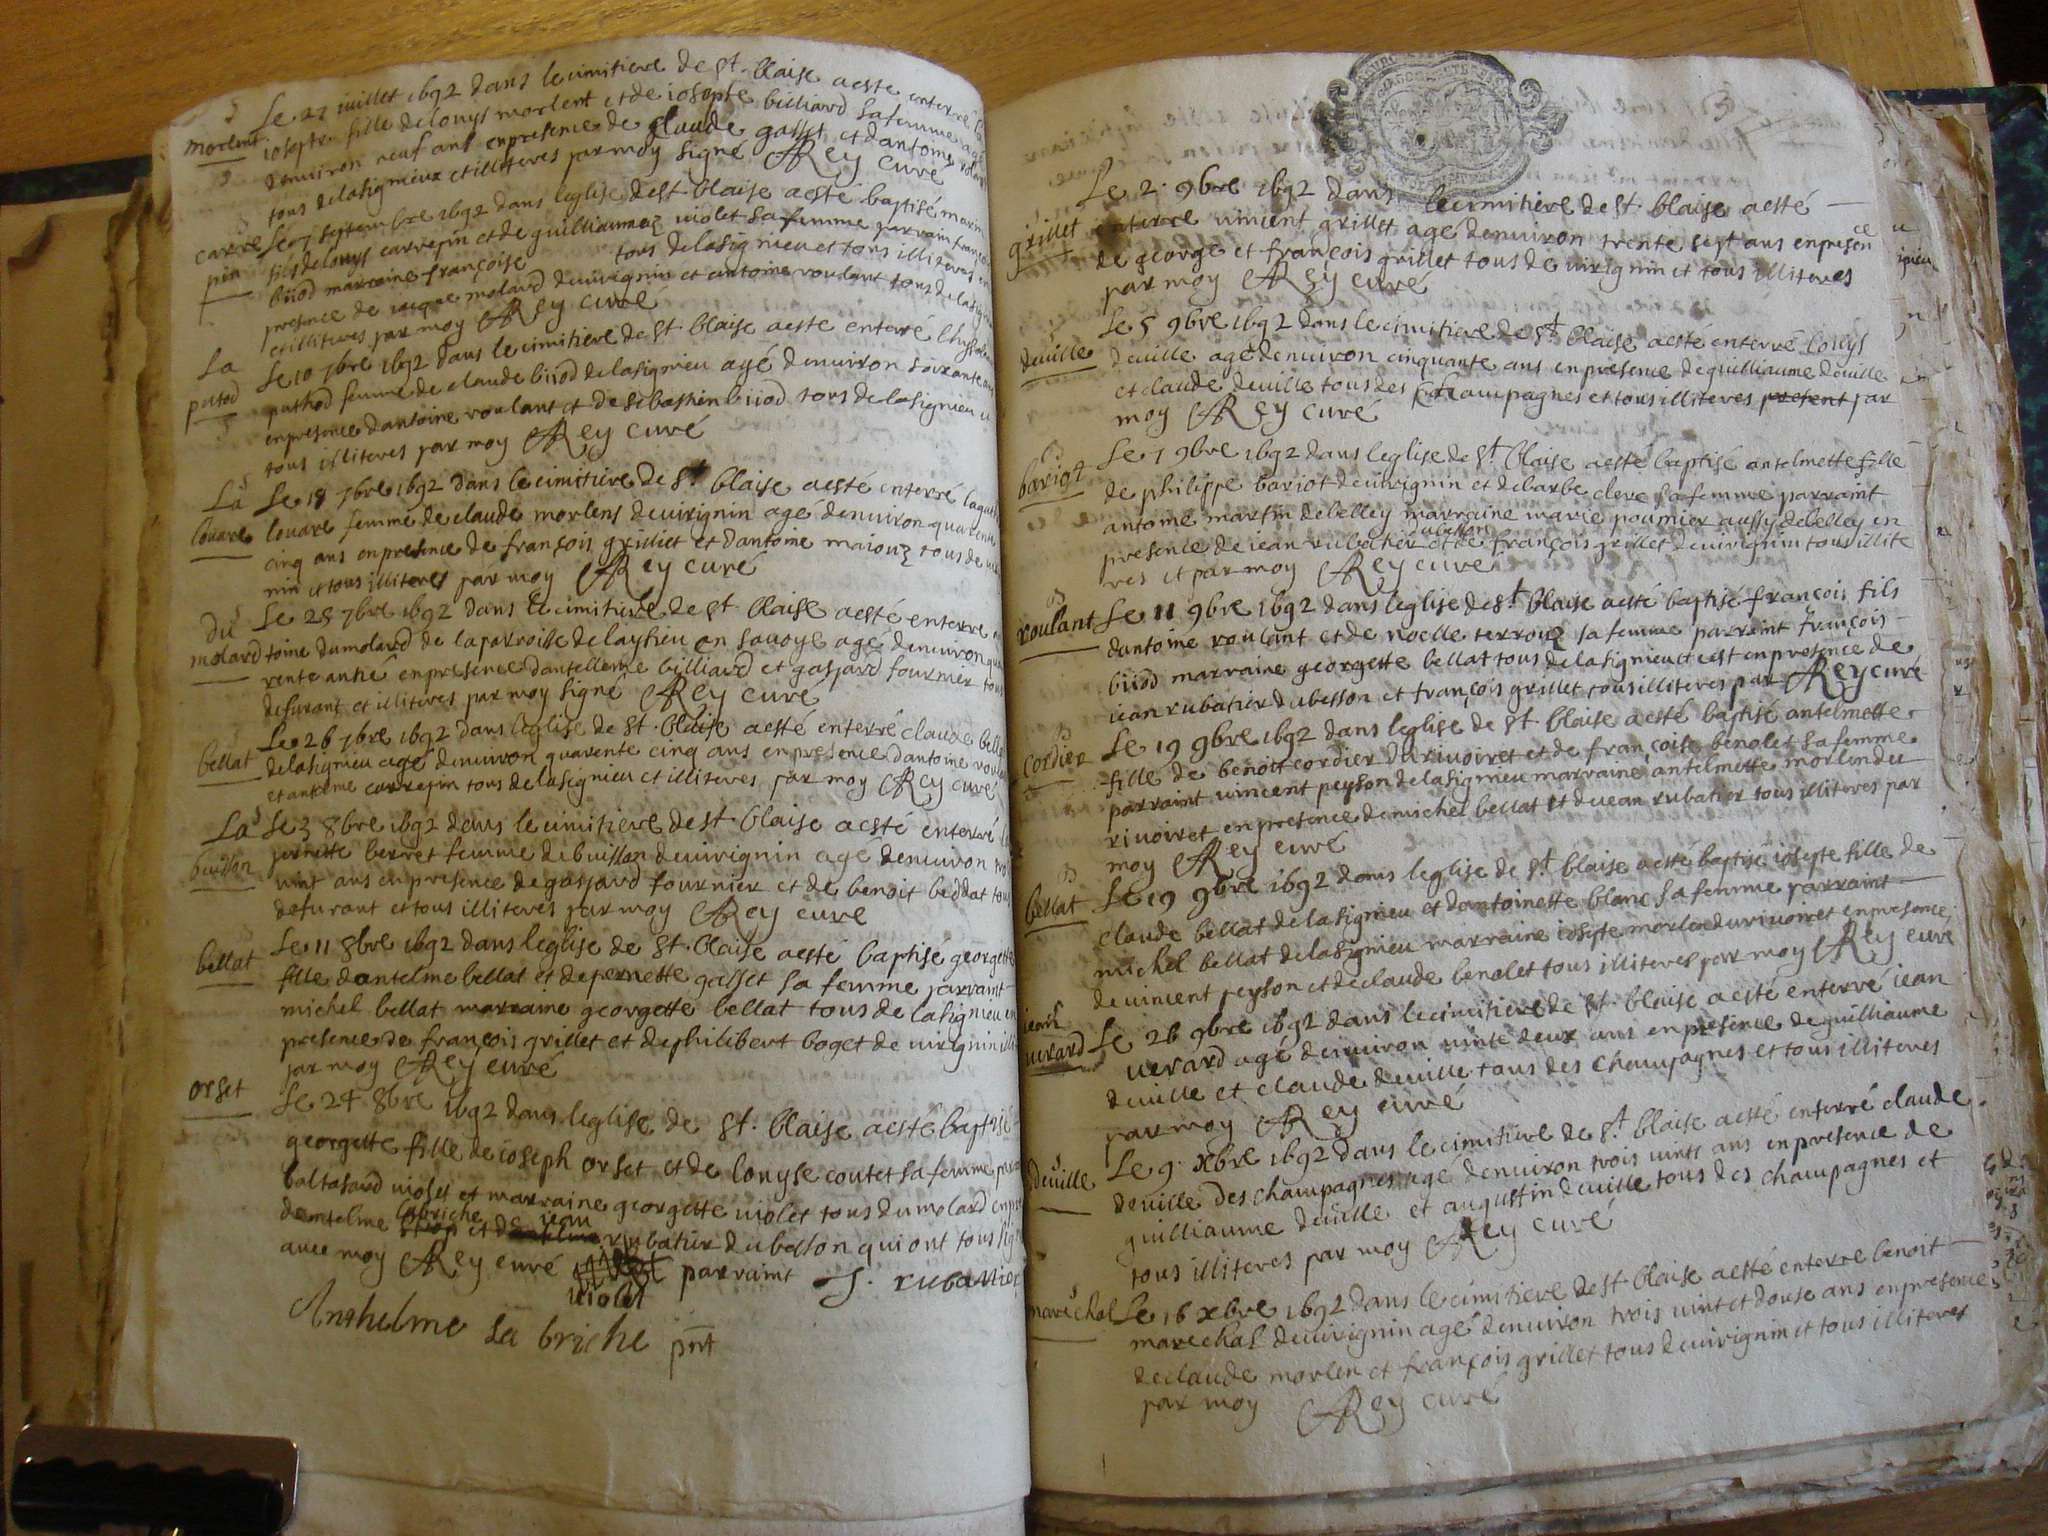 Le 27 juillet 1692 dans le cimitiere de st. blaise a esté enterré
morlent
iosepte fille de louys morlent et de iosepte billiard sa femme agé
denuiron neuf ans en presence de glaude gasset et dantoine
tous de lasignieux et illiteres par moy signé Rey curé
carre pin
Le 7 septembre 1692 dans leglise de st. blaise a esté baptisé marin
fils de louys carrepin et de guilliaumaz violet sa femme parrain
biiod marraine françoise tous de lasignieu et tous illiteres en
presence de molard de uirignin et antoine roulant tous de
et illiteres par moy Rey curé
La putod
Le 10 7bre 1692 dans le cimitiere de st. blaise a esté enterré
puthod femme de claude biiod de lasignieu agé denuiron soixante ans
en presence dantoine roulant et de sebastien biiod tous de lasignieu et
tous illiteres par moy Rey curé
La louare
Le 18 7bre 1692 dans le cimitiere de st blaise a esté enterré
louare femme de claude morlens de uirignin agé denuiron quarente
cinq ans en presence de françois grillet et dantoine maiouz tous de uirig
nin et tous illiteres par moy Rey curé
du molard
Le 25 7bre 1692 dans le cimitiere de st. blaise a esté enterré an
toine dumolard de la parroise de layhieu en sauoye agé denuiron qua
rente en presence dantellerme billiard et gaspard fournier tous
de furant et illiteres par moy signé Rey curé
bellat
Le 26 7bre 1692 dans leglise de st. blaise a esté enterré claude bellat
de lasignieu agé denuiron quarente cinq ans en presence dantoine
et antelme carrepin tous de lasignieu et illiteres par moy Rey curé
La buisson
Le 3 8bre 1692 dans le cimitiere de st blaise a esté enterré
pernette berret femme de buisson de uirignin agé denuiron
uint ans en presence de gaspard fournier et de benoit beddat tous
de furant et tous illiteres par moy Rey curé
bellat
Le 11 8bre 1692 dans leglise de st. blaise a esté baptisé georgette
fille dantelme bellat et de pernette gasset sa femme parraint
michel bellat marraine georgette bellat tous de lasignieu en
presence de françois grillet et de philibert boget de uirignin
par moy Rey curé
orset
Le 24 8bre 1692 dans leglise de st. blaise a esté baptisé
georgette fille de ioseph orset et de louyse coutet sa femme
baltasard uiolet et marraine georgette uiolet tous du molard en
dantelme labriche et de iean rubatier du besson qui ont tous
auec moy Rey curé uiolet parraint J. rubattier
Anthelme La briche pnt
Le 2. 9bre 1692 dans le cimitiere de st. blaise a esté
grillet
enterre uincent grillet agé denuiron trente sept ans en presen
ce
de george et françois grillet tous de uirignin et tous illiteres
par moy Rey curé
deuille
Le 5 9bre 1692 dans le cimitiere de st. blaise a esté enterré louys
deuille agé denuiron cinquante ans en presence de guilliaume deuille
et claude deuille tous des champagnes et tous illiteres present par
moy Rey curé
bariot
Le 7 9bre 1692 dans leglise de st. blaise a esté baptisé antelmette fille
de philippe bariot de uirignin et de barbe clere sa femme parraint
antoine martin de belley marraine marie poumier aussy de belley en
dubesson
presence de iean rubatier et de françois grillet de uirignin tous illite
res et par moy Rey curé
roulant
Le 11 9bre 1692 dans leglise de st. blaise a esté baptisé françois fils
dantoine roulant et de noelle terrouz sa femme parraint françois
biiod marraine georgette bellat tous de lasignieu et cest en presence de
iean rubatier du besson et françois grillet tous illiteres par Rey curé
cordier
Le 19 9bre 1692 dans leglise de st. blaise a esté baptisé antelmette
fille de benoit cordier du riuoiret et de françoise benolet sa femme
parraint uincent peyson de lasignieu marraine antelmette morlin du
riuoiret en presence de michel bellat et de iean rubatier tous illiteres par
moy Rey curé
bellat
Le 19 9bre 1692 dans leglise de st. blaise a esté baptisé iosepte fille de
claude bellat de lasignieu et dantoinette blanc sa femme parraint
michel bellat de lasignieu marraine iosepte morlin du riuoiret en presence
de uincent peyson et de claude benolet tous illiteres par moy Rey curé
uerard
Le 26 9bre 1692 dans le cimitiere de st. blaise a esté enterré iean
uerard agé denuiron uinte deux ans en presence de guilliaume
deuille et claude deuille tous des champagnes et tous illiteres
par moy Rey curé
deuille
Le 9. xbre 1692 dans le cimitiere de st. blaise a esté enterré claude
deuille des champagnes agé denuiron trois uints ans en presence de
guilliaume deuille et augustin deuille tous des champagnes et
tous illiteres par moy Rey curé
marechal
Le 16 xbre 1692 dans le cimitiere de st blaise a esté enterre benoit
marechal de uirignin agé denuiron trois uint et douse ans en presence
de claude morlen et françois grillet tous de uirignin et tous illiteres
par moy Rey curé